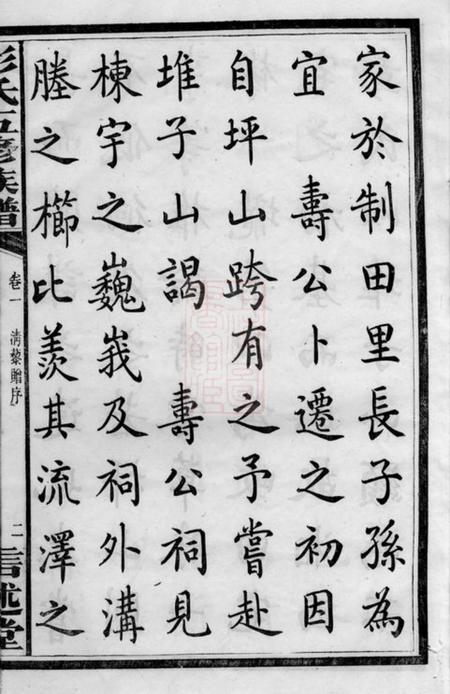 家於制田里長子孫為
宜 壽公卜遷之初因
自坪山跨有之予嘗赴
堆子山謁 壽公祠見
棟宇之巍峩及祠外溝
塍之櫛比羨其流澤之
彭氏五修族譜 卷一 清黎贈序 二 言述堂